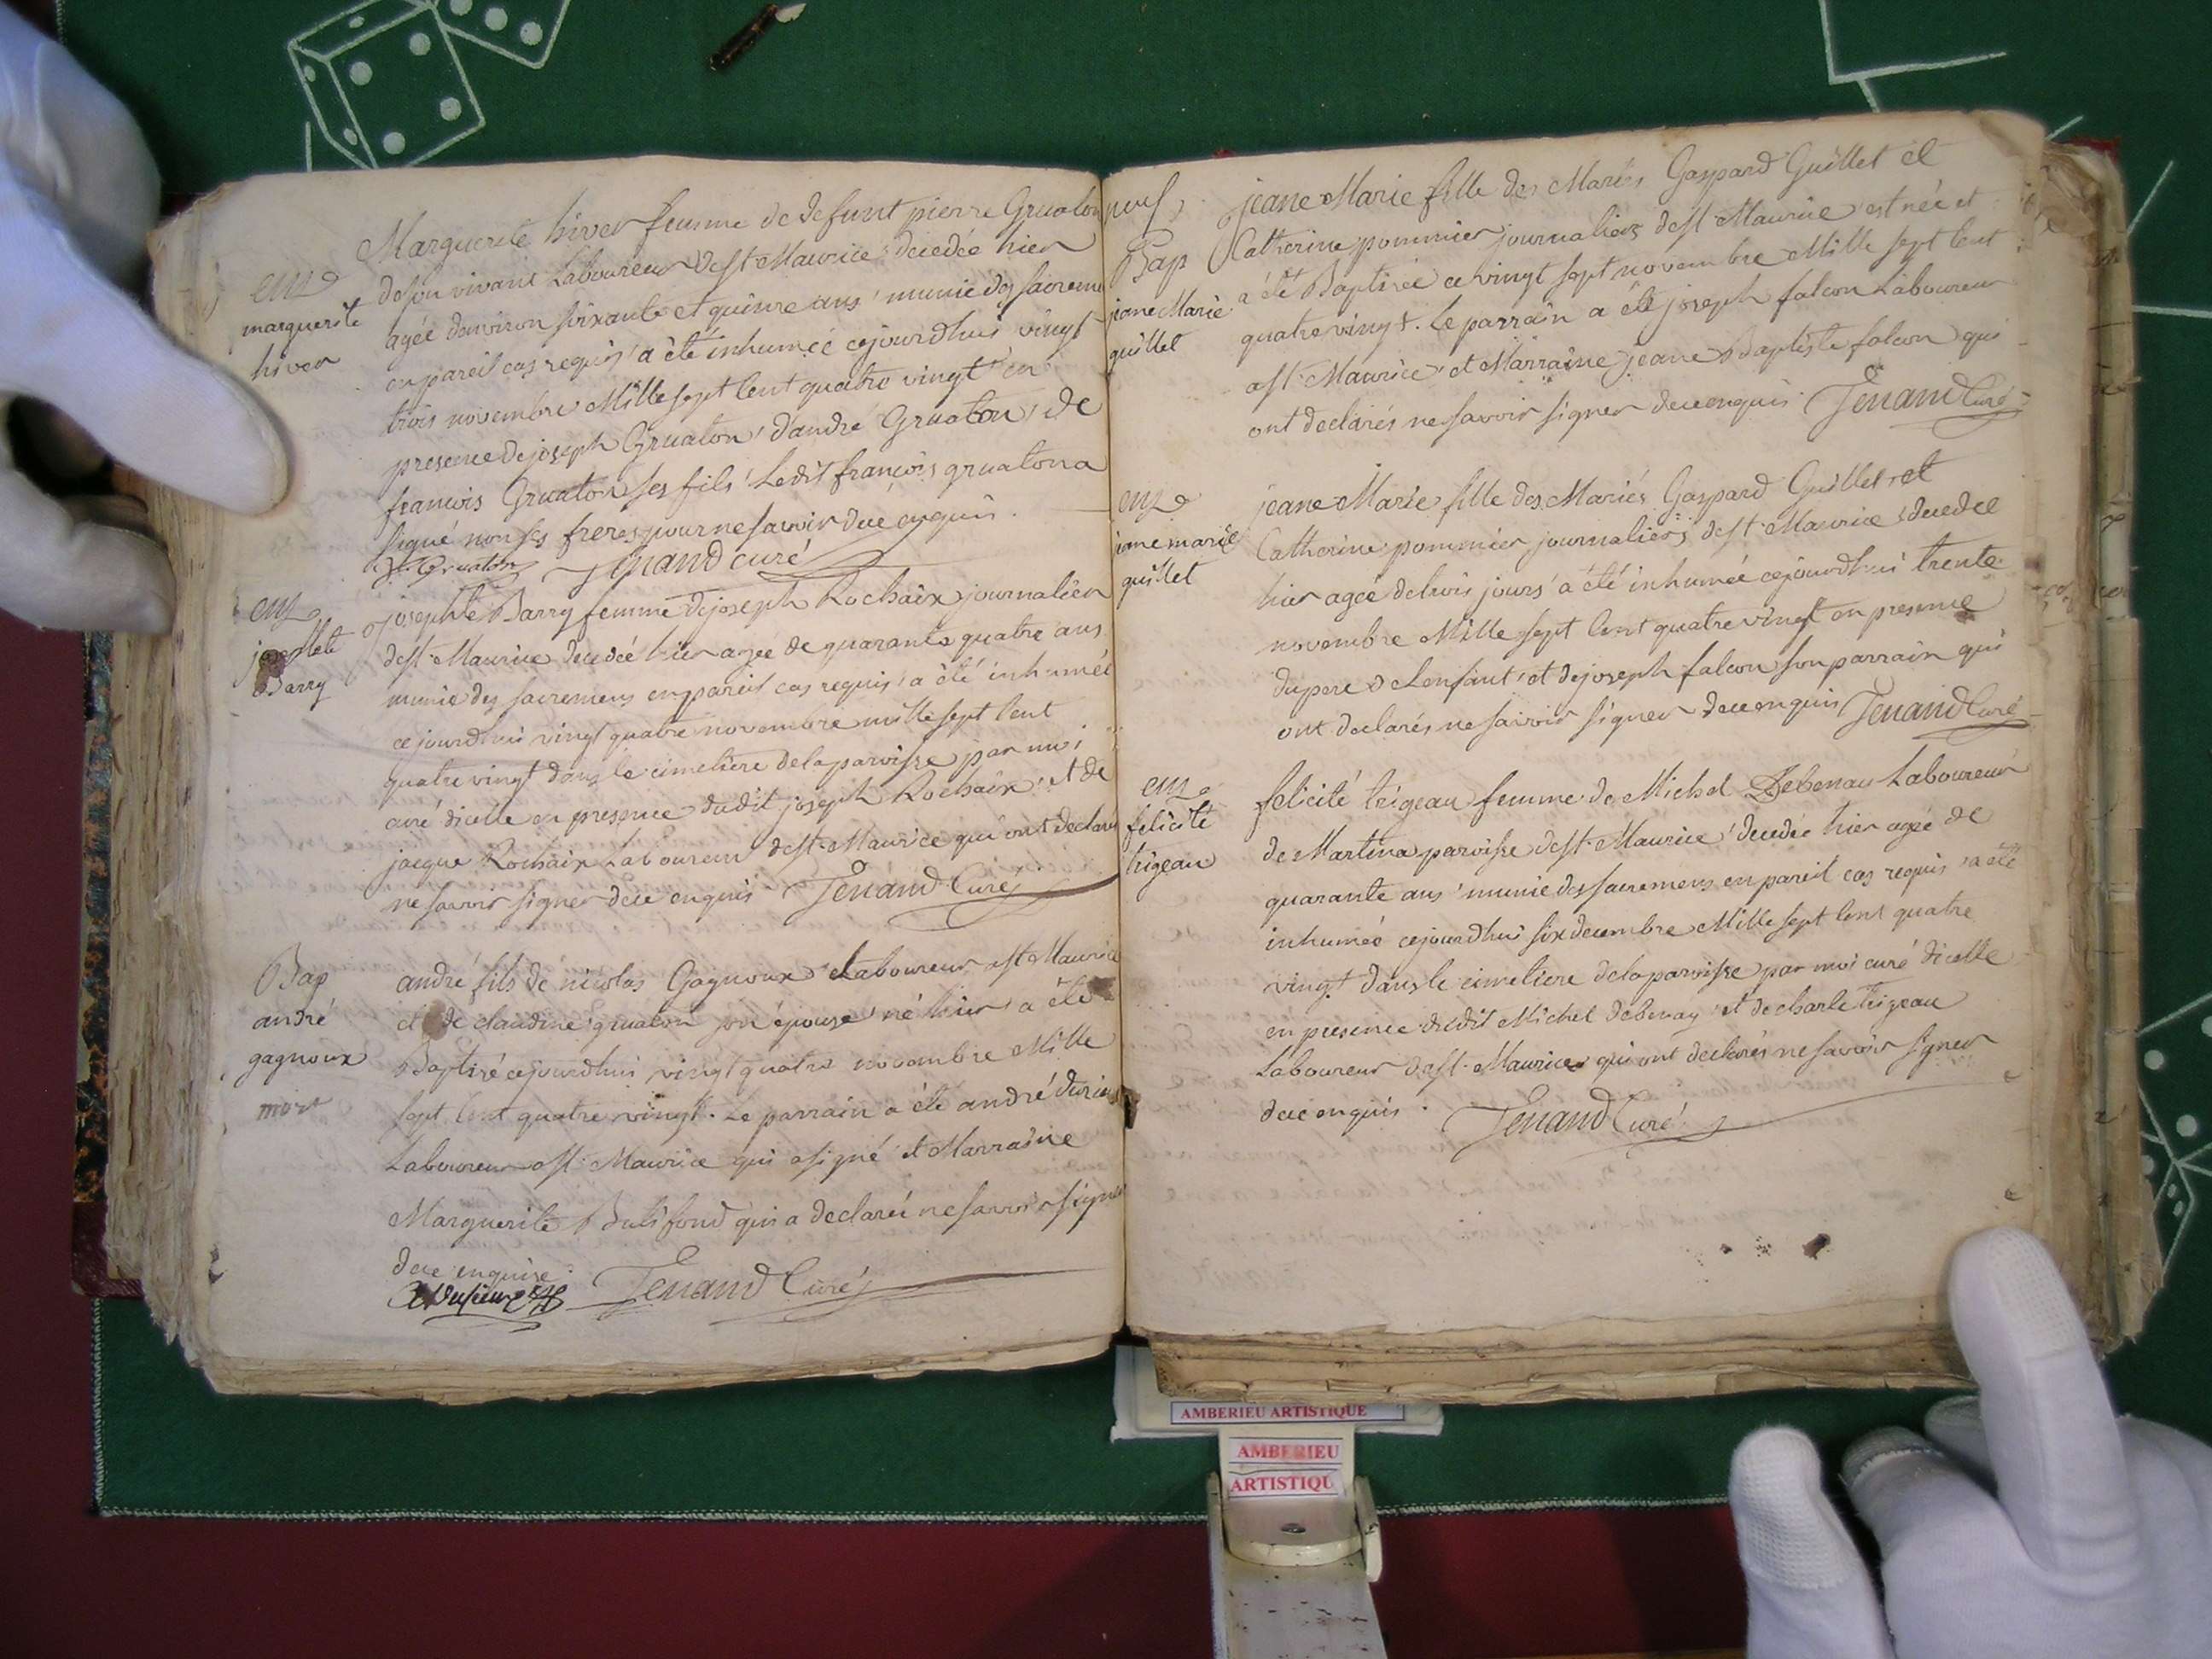 Marguerite hiver femme de defunt pierre Gruaton
de son vivant Laboureur de st Maurice decedée hier
agée denviron soixante et quinze ans munie des sacremens
en pareil cas requis a été inhumée cejourdhui vingt
trois novembre Mille sept Cent quatre vingt en
presence de joseph Gruaton d'andré Gruaton de
francois Gruaton ses fils Ledit francois gruaton a
signé non ses freres pour ne savoir de ce enquis.
fr. Gruaton Tenand curé
marguerite
hiver
josephte Barry femme de joseph Rochaix journalier
de st Maurice decedée hier agée de quarante quatre ans
munie des sacremens en pareil cas requis a été inhumée
ce jourdhui vingt quatre novembre mille sept Cent
quatre vingt dans le cimetiere de la paroisse par moi
curé dicelle en presence dudit joseph Rochaix et de
jacque Rochaix Laboureur de st Maurice qui ont declarés
ne savoir signer de ce enquis Tenand Curé
josephte
Barry
andré fils de nicolas Gagnoux Laboureur a st Maurice
et de claudine gruaton son épouse né hier a été
Baptisé cejourdhui vingt quatre novembre Mille
sept Cent quatre vingt. Le parrain a été andré
Laboureur a st Maurice qui a signé et Marraine
Marguerite qui a declaré ne savoir signer
de ce enquise.
Tenand Curé
Bap
andré
gagnoux
mort
neuf
jeane Marie fille des Mariés Gaspard Guillet et
Catherine pommier journaliers de st Maurice est née et
a été Baptisée ce vingt sept novembre Mille sept Cent
quatre vingt. Le parrain a été joseph falcon Laboureur
a st Maurice et Marraine jeane Baptiste falcon qui
ont declarés ne savoir signer de ce enquis Tenand Curé
Bap
jeane Marie
guillet
jeane Marie fille des Mariés Gaspard Guillet et
Catherine pommier journaliers de st Maurice decedée
hier agée de trois jours a été inhumée cejourdhui trente
novembre Mille sept Cent quatre vingt en presence
du pere de Lenfant et de joseph falcon son parrain qui
ont declarés ne savoir signer de ce enquis Tenand Curé
jeane marie
guillet
felicité trigeau femme de Michel Debenay Laboureur
de Martina paroisse de st Maurice decedée hier agée de
quarante ans munie des sacremens en pareil cas requis a été
inhumée cejourdhui six decembre Mille sept Cent quatre
vingt dans le cimetiere de la paroisse par moi curé dicelle
en presence dudit Michel debenay et de charle trigeau
Laboureur de st Maurice qui ont declarés ne savoir signer
de ce enquis. Tenand Curé
felicité
trigeau
AMBERIEU ARTISTIQUE
AMBERIEU
ARTISTIQU